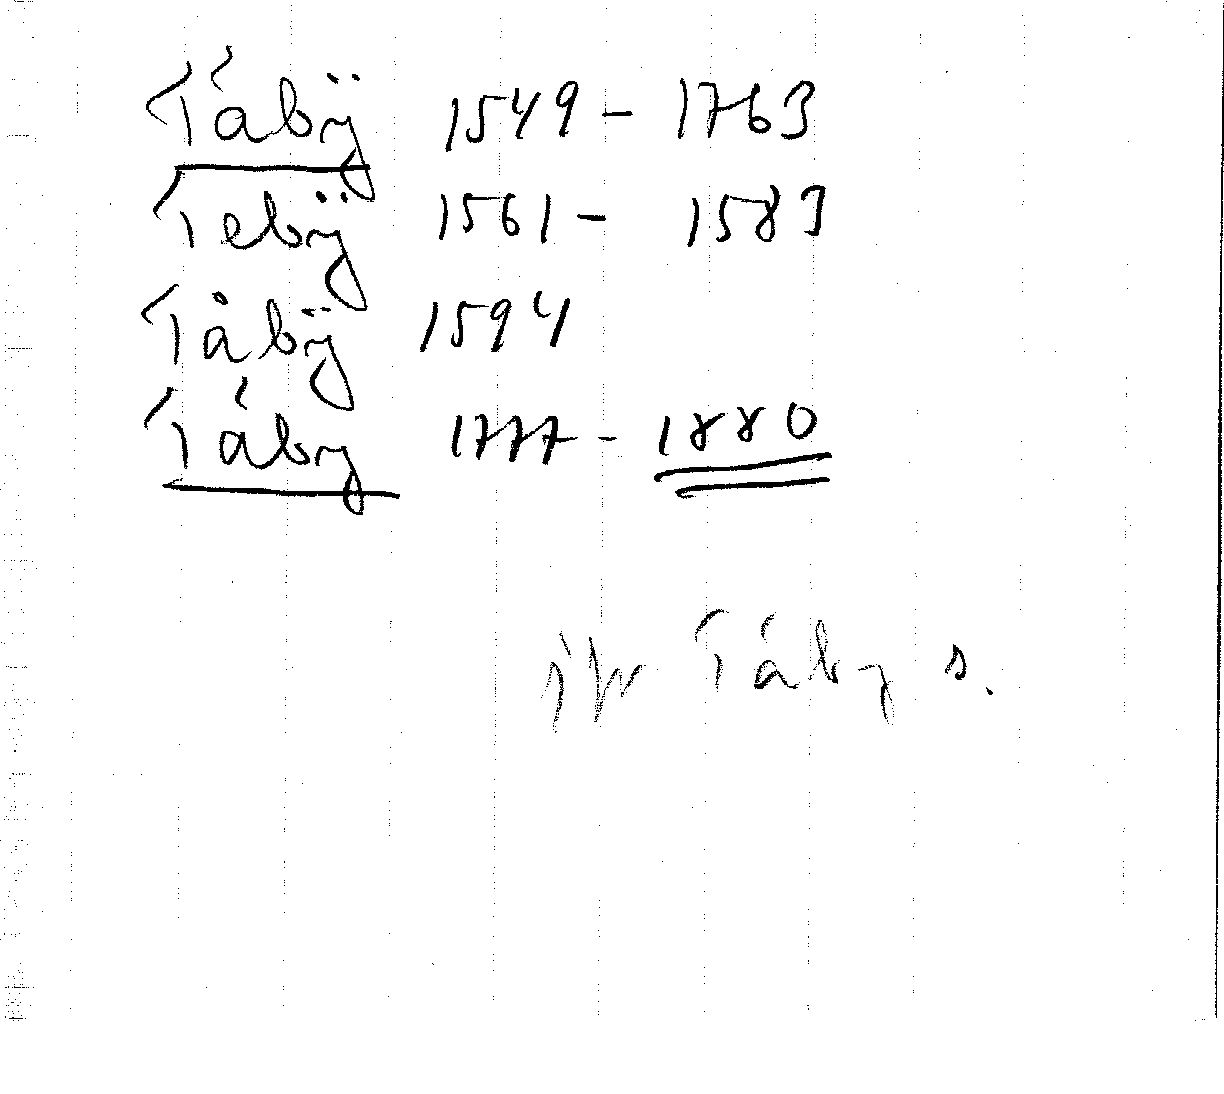 Täbÿ 1549 - 1763
Tebÿ 1561 - 1583
Tåbÿ 1594
Täby 1777 - 1880
Täby s.